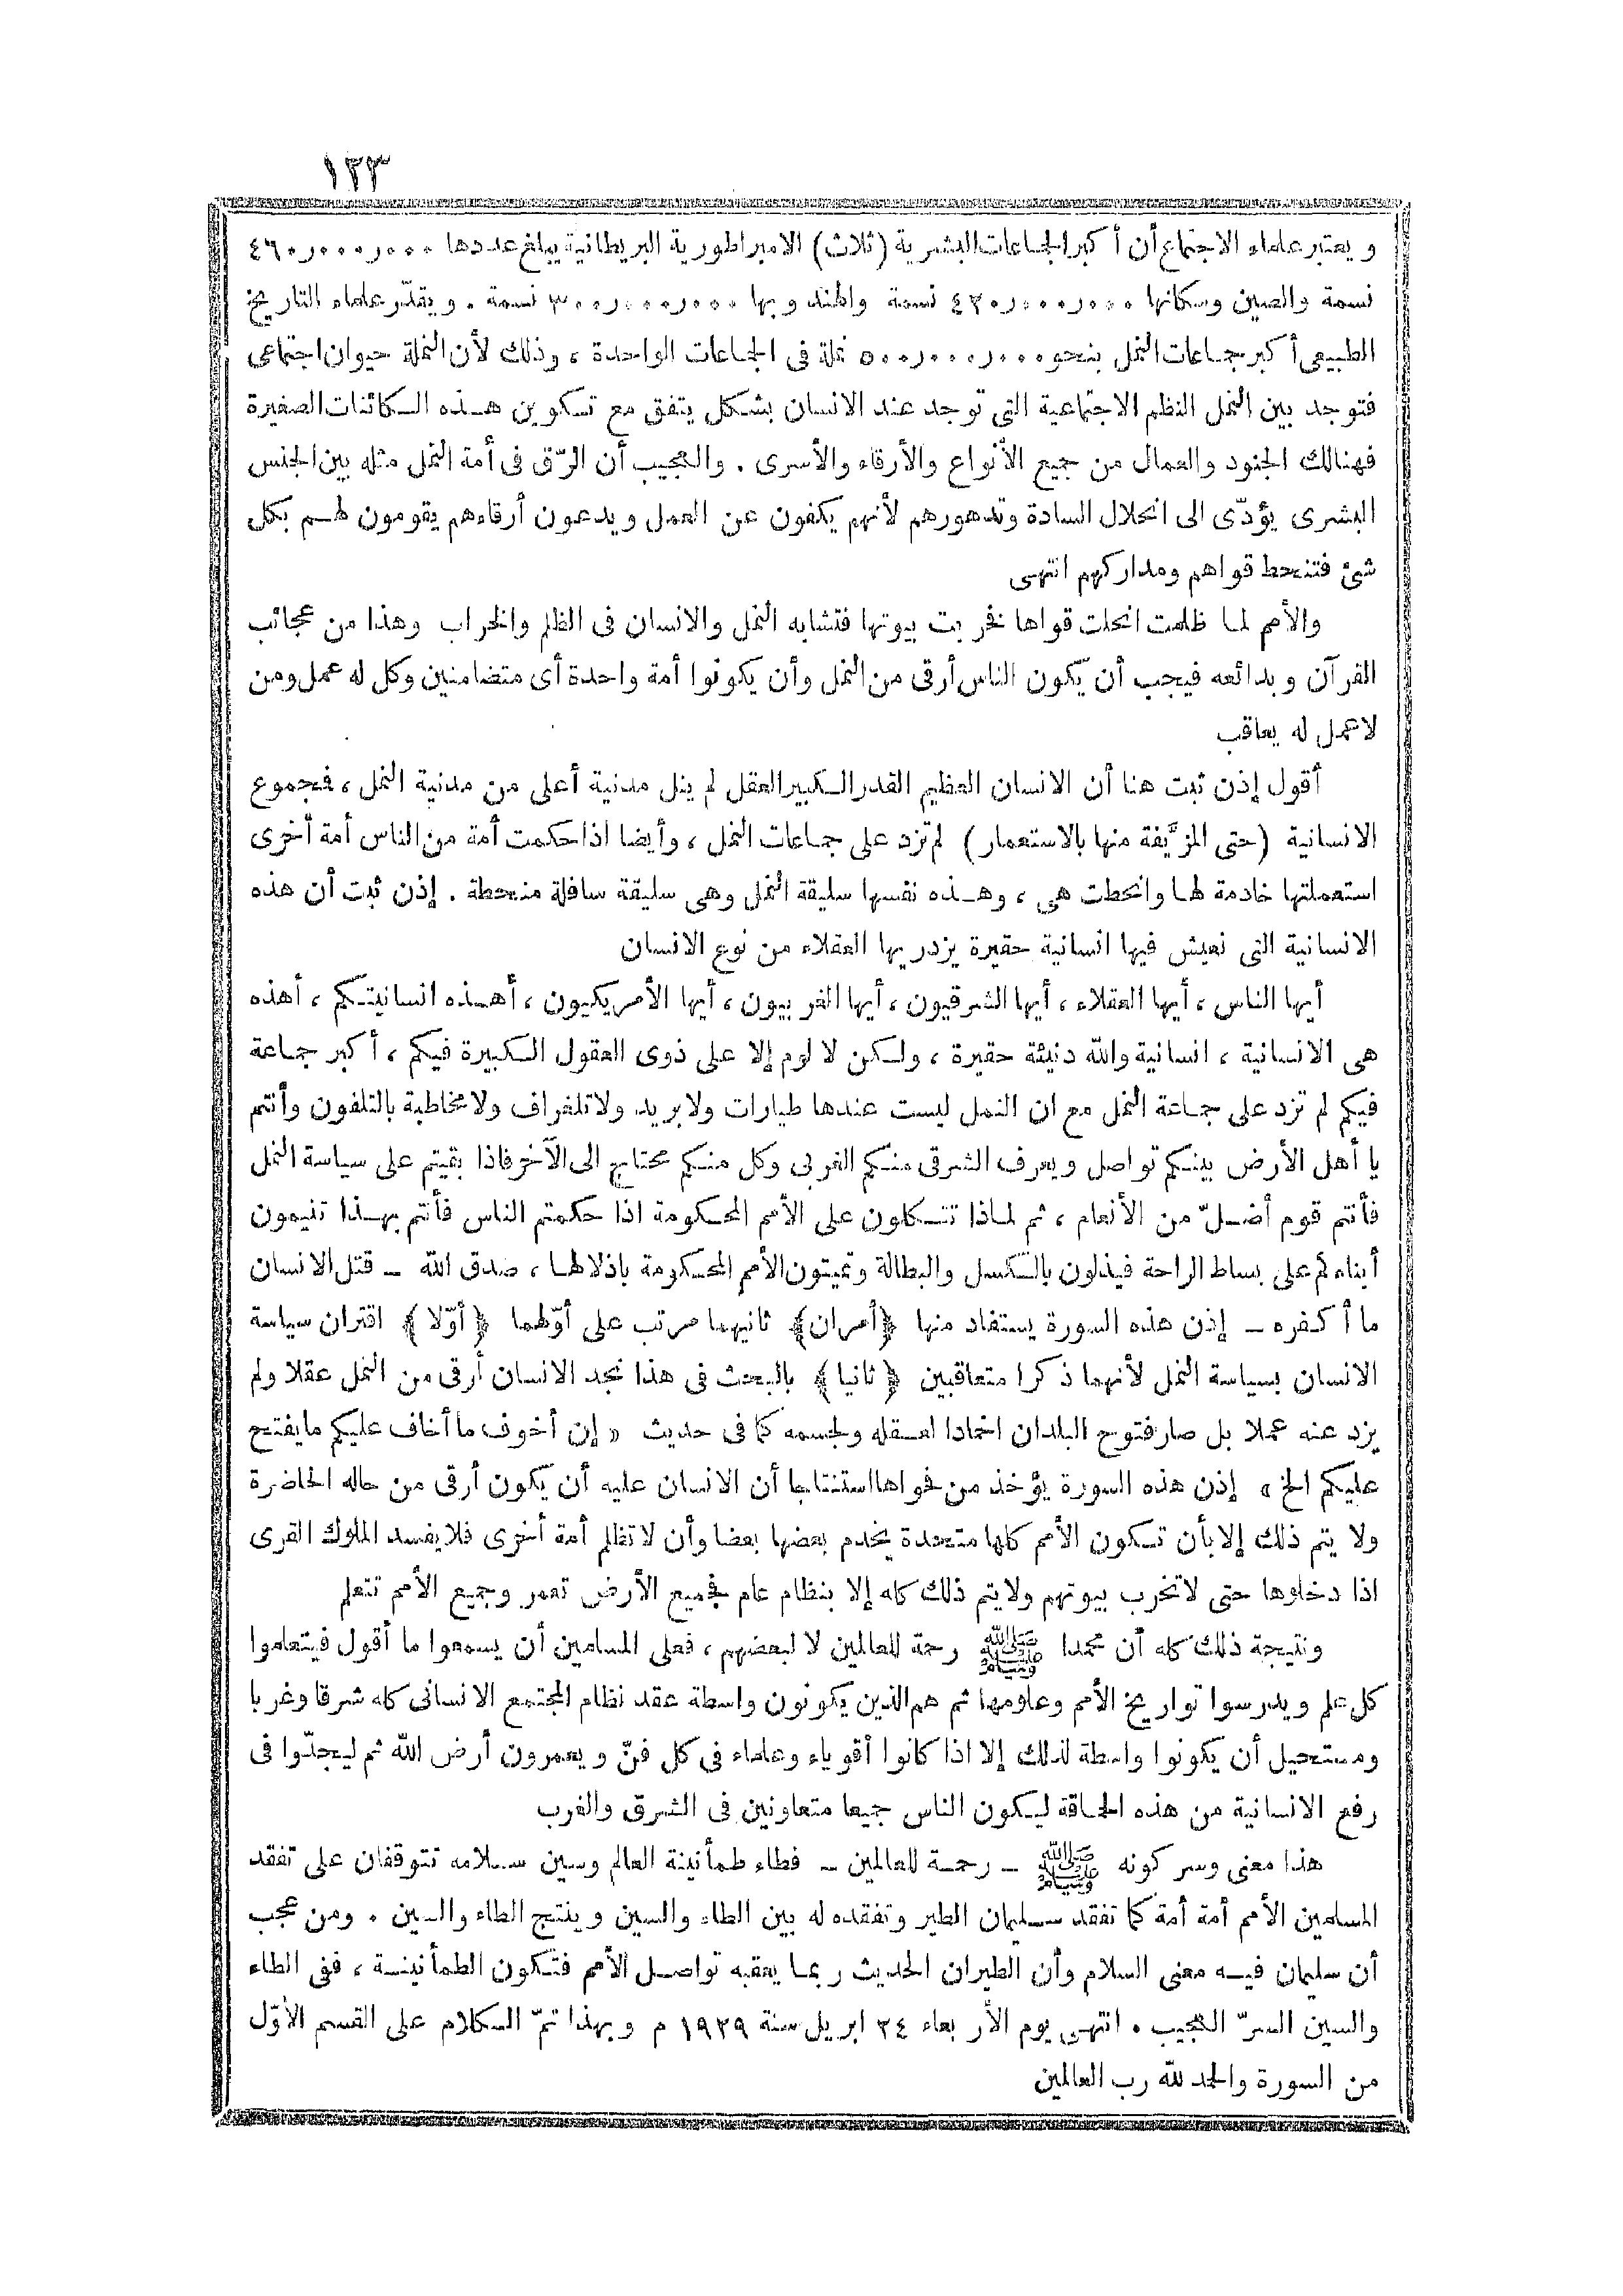 ١٢٣
ويعتبر علماء الاجتماع أن أكبر الجماعات البشرية (ثلاث) الامبراطورية البريطانية يبلغ عددها ٤٦٠٫٠٠٠٫٠٠٠
نسمة والصين وسكانها ٤٣٠٫٠٠٠٫٠٠٠ نسمة والهند وبها ٣٠٠٫٠٠٠٫٠٠٠ نسمة . ويقدّر علماء التاريخ
الطبيعى أكبر جماعات النمل بنحو ٥٠٠٫٠٠٠٫٠٠٠ نملة فى الجماعات الواحدة ، وذلك لأن النملة حيوان اجتماعى
فتوجد بين النمل النظم الاجتماعية التى توجد عند الانسان بشكل يتفق مع تكوين هذه الكائنات الصغيرة
فهنالك الجنود والعمال من جميع الأنواع والأرقاء والأسرى . والعجيب أن الرّق فى أمة النمل مثله بين الجنس
البشرى يؤدّى الى انحلال السادة وتدهورهم لأنهم يكفون عن العمل ويدعون أرقاءهم يقومون لهم بكل
شئ فتنحط قواهم ومداركهم انتهى
والأمم لما ظلمت انحلت قواها فخربت بيوتها فتشابه النمل والانسان فى الظلم والخراب وهذا من عجائب
القرآن وبدائعه فيجب أن يكون الناس أرقى من النمل وأن يكونوا أمة واحدة أى متضامنين وكل له عمل ومن
لا عمل له يعاقب
أقول إذن ثبت هنا أن الانسان العظيم القدر الكبير العقل لم ينل مدنية أعلى من مدنية النمل ، فمجموع
الانسانية (حتى المزيّفة منها بالاستعمار) لم تزد على جماعات النمل ، وأيضا اذا حكمت أمة من الناس أمة أخرى
استعملتها خادمة لها وانحطت هى ، وهذه نفسها سليقة النمل وهى سليقة سافلة منحطة . إذن ثبت أن هذه
الانسانية التى نعيش فيها انسانية حقيرة يزدريها العقلاء من نوع الانسان
أيها الناس ، أيها العقلاء ، أيها الشرقيون ، أيها الغربيون ، أيها الأمريكيون ، أهذه انسانيتكم ، أهذه
هى الانسانية ، انسانية والله دنيئة حقيرة ، ولكن لا لوم إلا على ذوى العقول الكبيرة فيكم ، أكبر جماعة
فيكم لم تزد على جماعة النمل مع ان النمل ليست عندها طيارات ولا بريد ولا تلغراف ولا مخاطبة بالتلفون وأنتم
يا أهل الأرض بينكم تواصل ويعرف الشرقى منكم الغربى وكل منكم محتاج الى الآخر فاذا بقيتم على سياسة النمل
فأنتم قوم أضلّ من الأنعام ، ثم لماذا تتكلون على الأمم المحكومة اذا حكمتم الناس فأنتم بهذا تنيمون
أبناءكم على بساط الراحة فيذلون بالكسل والبطالة وتميتون الأمم المحكومة باذلالها ، صدق الله - قتل الانسان
ما أكفره - إذن هذه السورة يستفاد منها ﴿أمران﴾ ثانيهما مرتب على أوّلهما ﴿أوّلا﴾ اقتران سياسة
الانسان بسياسة النمل لأنهما ذكرا متعاقبين ﴿ثانيا﴾ بالبحث فى هذا نجد الانسان أرقى من النمل عقلا ولم
يزد عنه عملا بل صار فتوح البلدان اخمادا لعقله ولجسمه كما فى حديث « إن أخوف ما أخاف عليكم ما يفتح
عليكم الخ » إذن هذه السورة يؤخذ من فحواها استنتاجا أن الانسان عليه أن يكون أرقى من حاله الحاضرة
ولا يتم ذلك إلا بأن تكون الأمم كلها متحدة يخدم بعضها بعضا وأن لا تظلم أمة أخرى فلا يفسد الملوك القرى
اذا دخلوها حتى لا تخرب بيوتهم ولا يتم ذلك كله إلا بنظام عام فجميع الأرض تعمر وجميع الأمم تتعلم
ونتيجة ذلك كله أن محمدا ﷺ رحمة للعالمين لا لبعضهم ، فعلى المسلمين أن يسمعوا ما أقول فيتعلموا
كل علم ويدرسوا تواريخ الأمم وعلومها ثم هم الذين يكونون واسطة عقد نظام المجتمع الانسانى كله شرقا وغربا
ومستحيل أن يكونوا واسطة لذلك إلا اذا كانوا أقوياء وعلماء فى كل فنّ ويعمرون أرض الله ثم ليجدّوا فى
رفع الانسانية من هذه الحماقة ليكون الناس جميعا متعاونين فى الشرق والغرب
هذا معنى وسر كونه ﷺ - رحمة للعالمين - فطاء طمأنينة العالم وسين سلامه تتوقفان على تفقد
المسلمين الأمم أمة أمة كما تفقد سليمان الطير وتفقده له بين الطاء والسين وينتج الطاء والسين . ومن عجب
أن سليمان فيه معنى السلام وأن الطيران الحديث ربما يعقبه تواصل الأمم فتكون الطمأنينة ، ففى الطاء
والسين السرّ العجيب . انتهى يوم الأربعاء ٢٤ ابريل سنة ١٩٢٩ م وبهذا تمّ الكلام على القسم الأوّل
من السورة والحمد لله رب العالمين